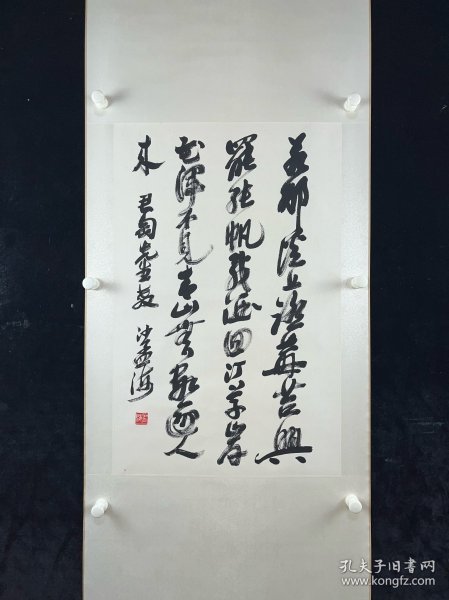 若耶溪上踏莓苔興
罷張帆載酒回汀草岸
花渾不見青山無數逐人
來 君匋先生教 沙孟海
孔夫子旧书网
www.kongfz.com